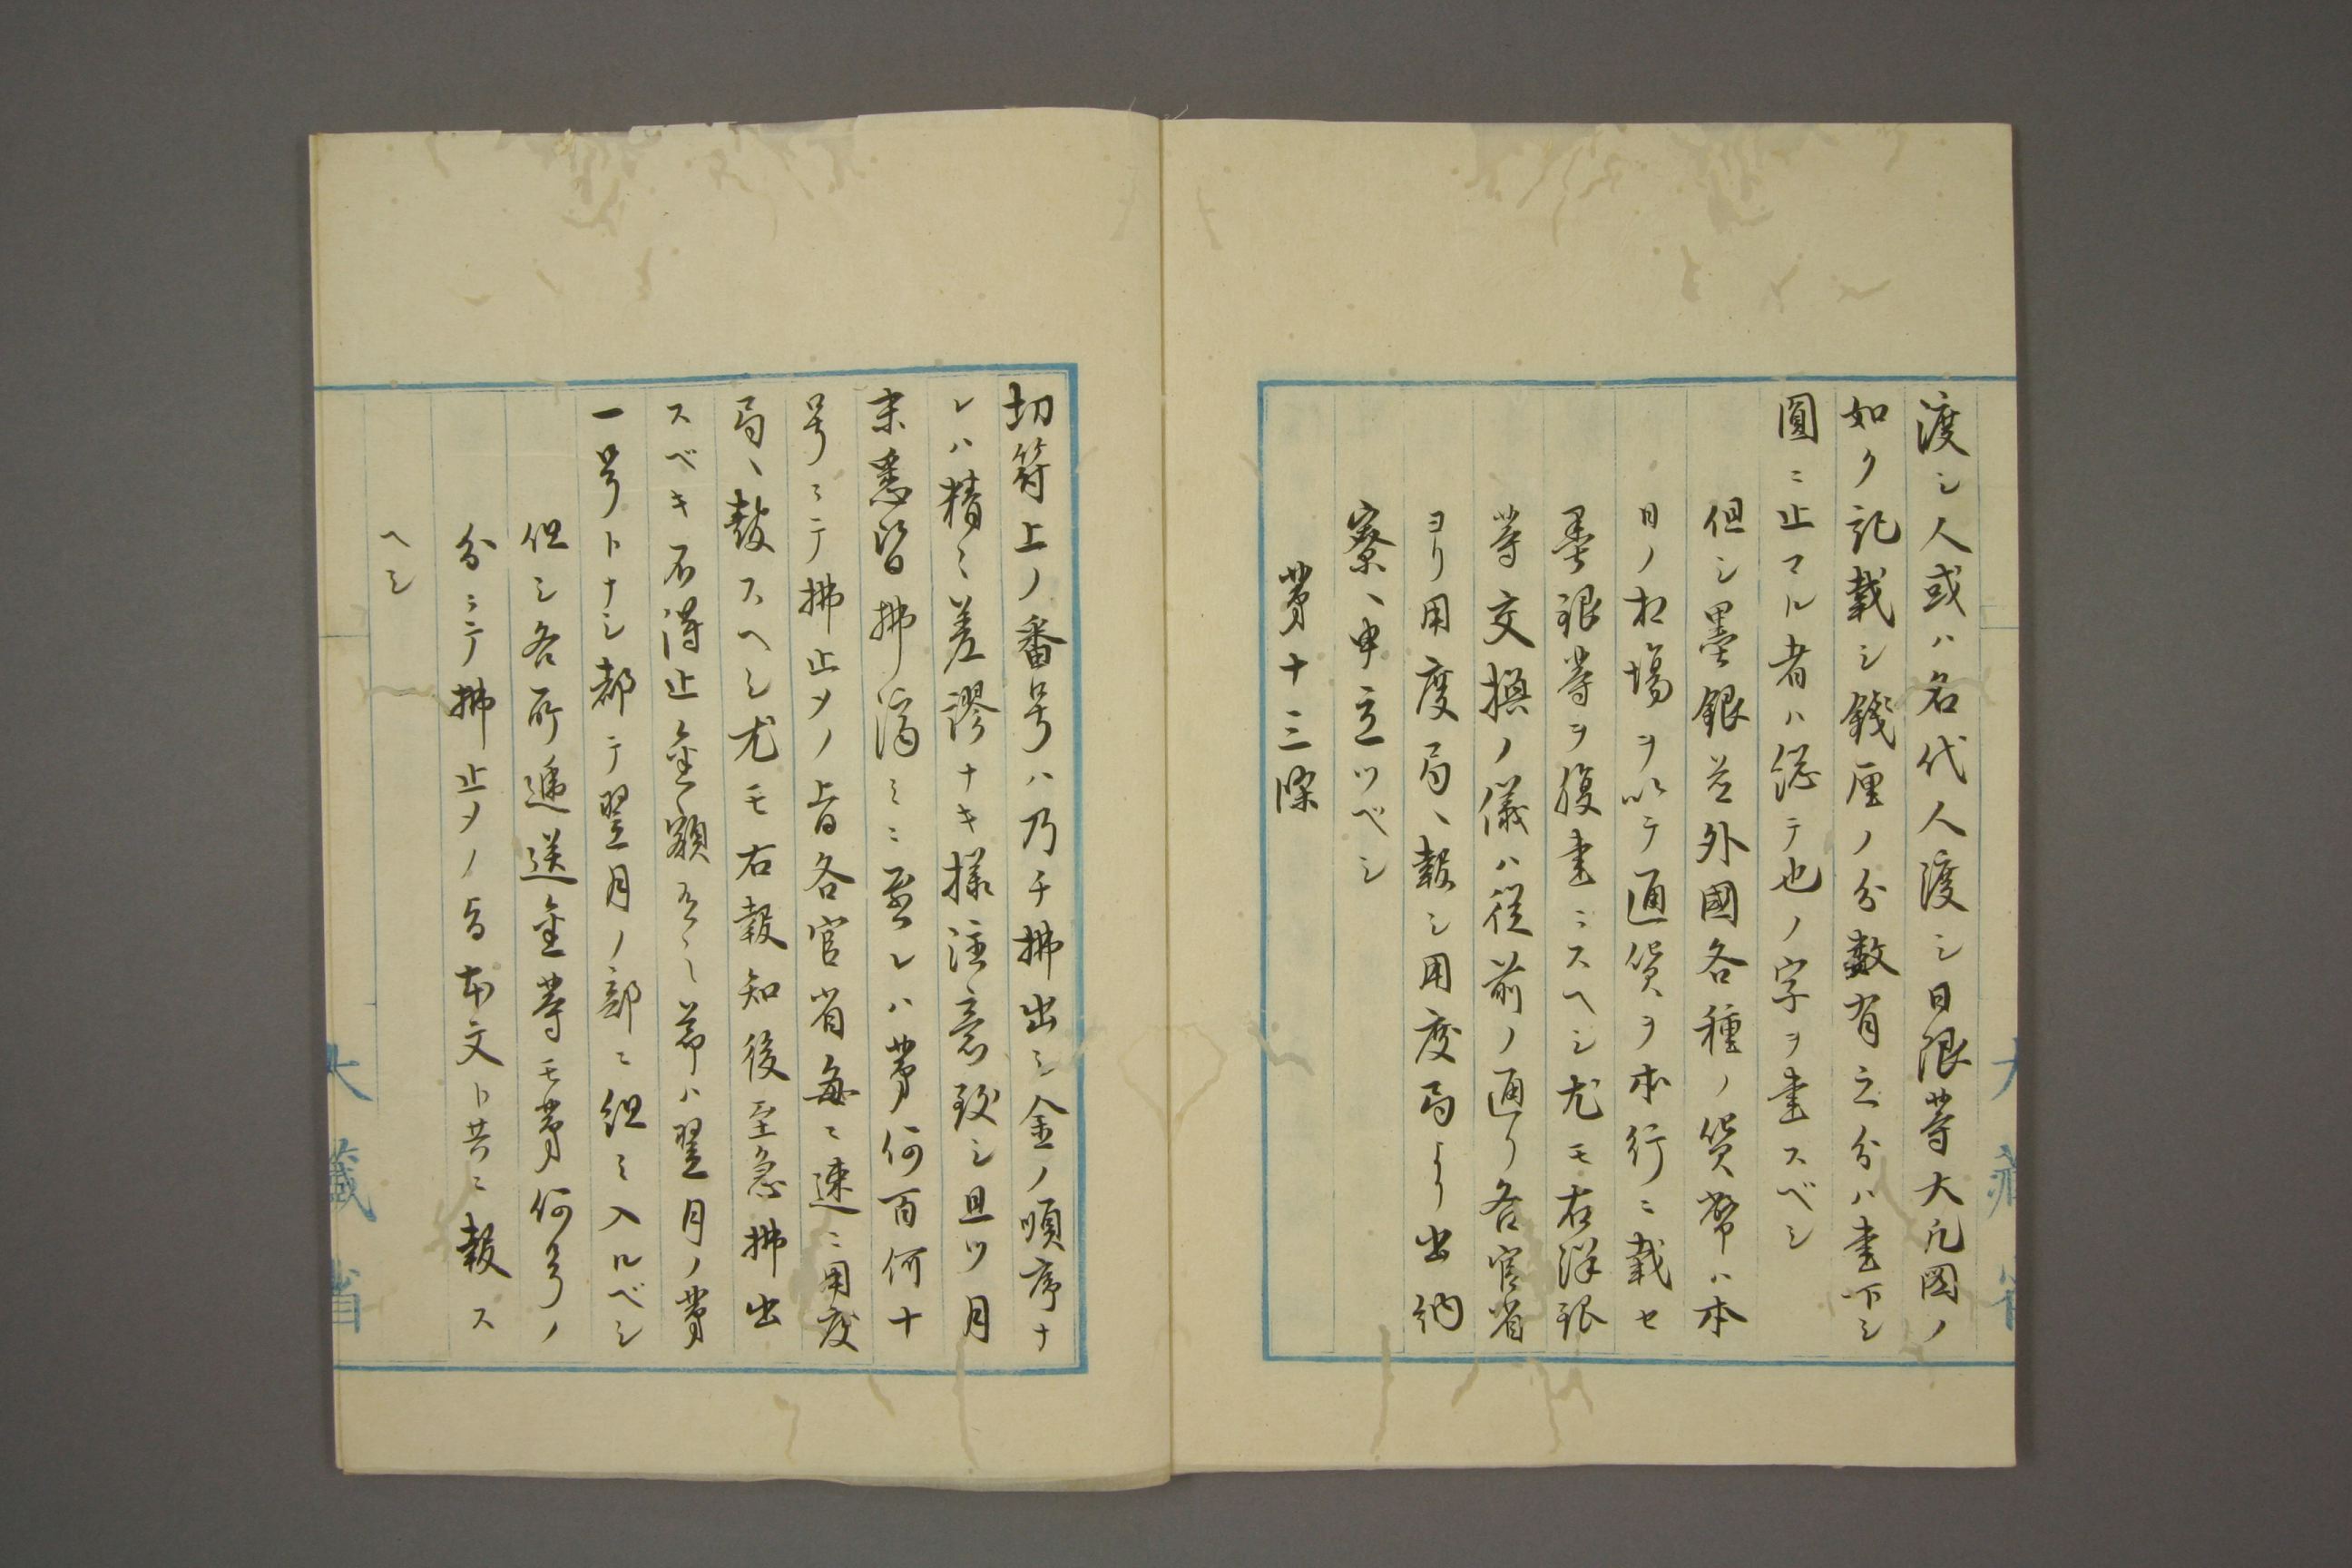 渡シ人或ハ名代人渡シ日限等大凡図ノ
如ク記載シ錢厘ノ分数有之分ハ書下シ
圓ニ止マル者ハ総テ也ノ字ヲ書スベシ
但シ墨銀並外國各種ノ貨幣ハ本
日ノ相場ヲ以テ通貨ヲ本行ニ載セ
墨銀等ヲ腹書ニスヘシ尤モ右洋銀
等交換ノ儀ハ従前ノ通リ各官省
ヨリ用度局ヘ報シ用度局ヨリ出納
寮ヘ申立ツベシ
第十三條
切符上ノ番号ハ乃チ拂出シ金ノ順序ナ
レハ精々差謬ナキ様注意致シ且ツ月
末悉皆拂済ミニ至レハ第何百何十
号ニテ拂止メノ旨各官省毎ニ速ニ用度
局ヘ報スヘシ尤モ右報知後至急拂出
スベキ不得止金額有之節ハ翌月ノ第
一号トナシ都テ翌月ノ部ニ組ミ入ルベシ
但シ各所逓送金等モ第何号ノ
分ニテ拂止メノ旨本文ト共ニ報ス
ヘシ
大藏省
大藏省